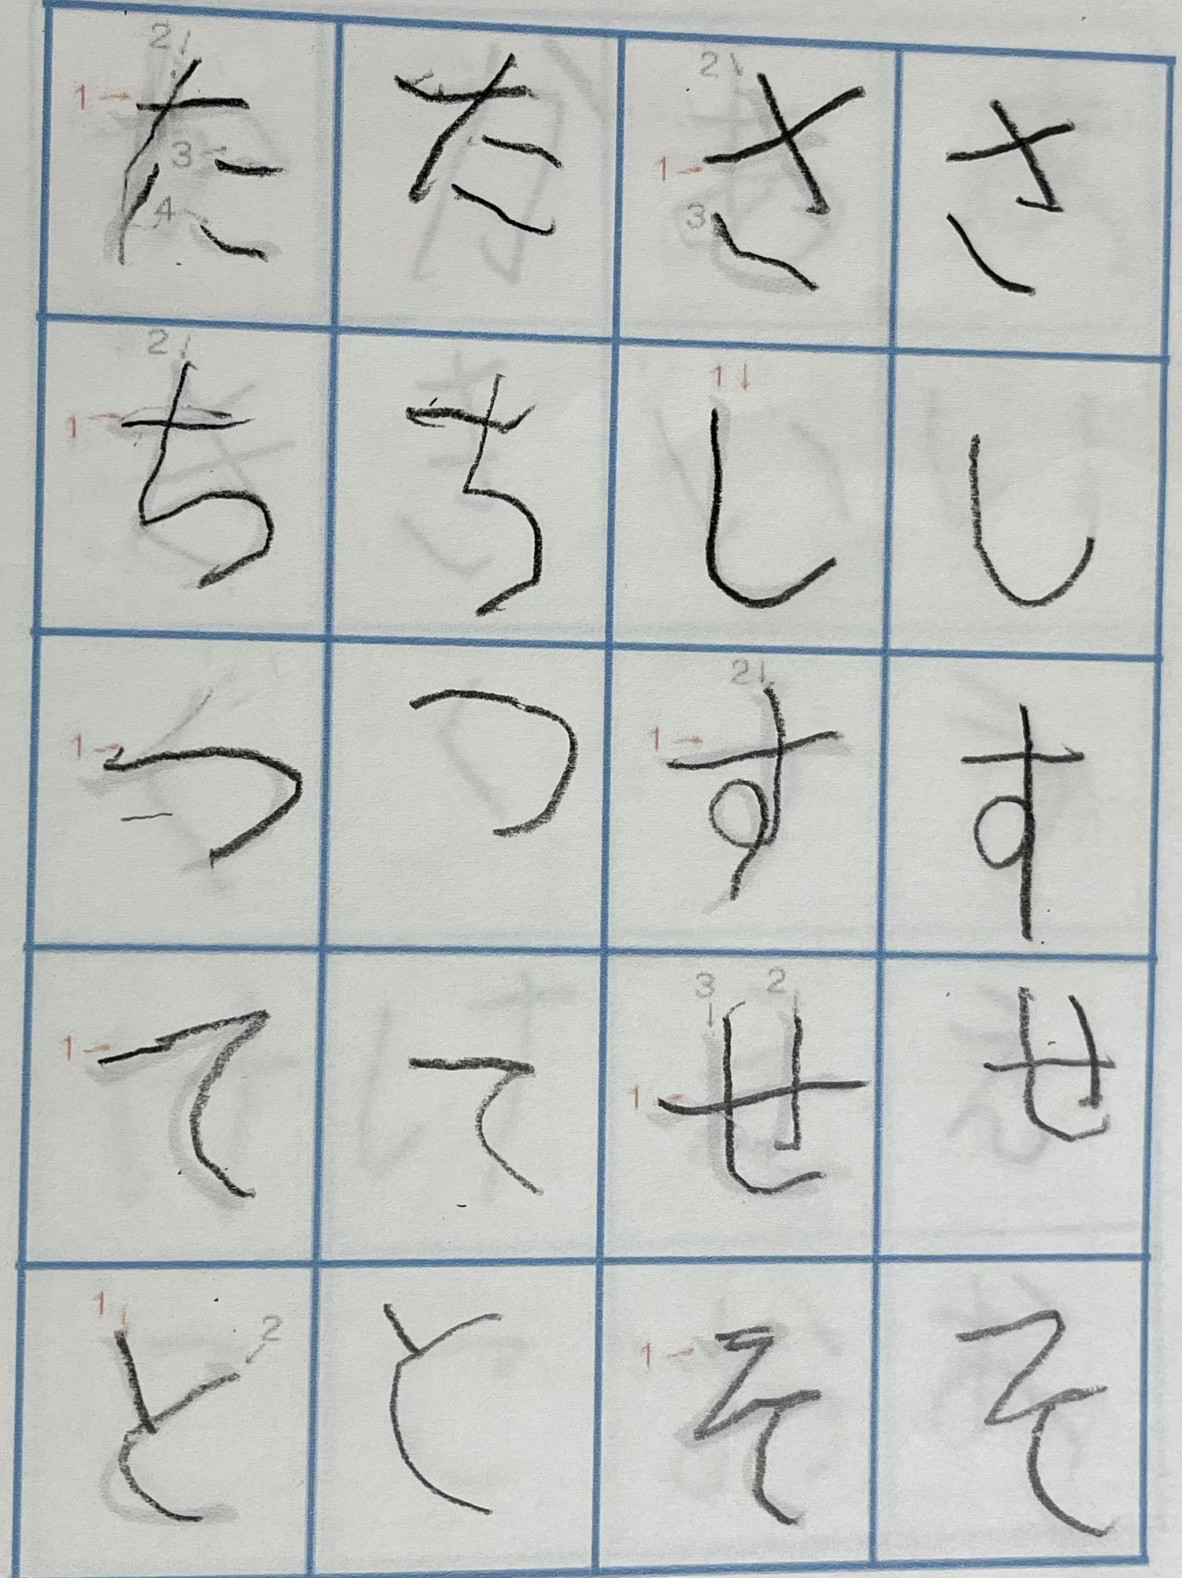 2 1 3 4 た た 2 1 3 さ さ
2 1 ち ち 1 し し
1 つ つ 2 1 す す
1 て て 3 2 1 せ せ
1 2 と と 1 そ そ